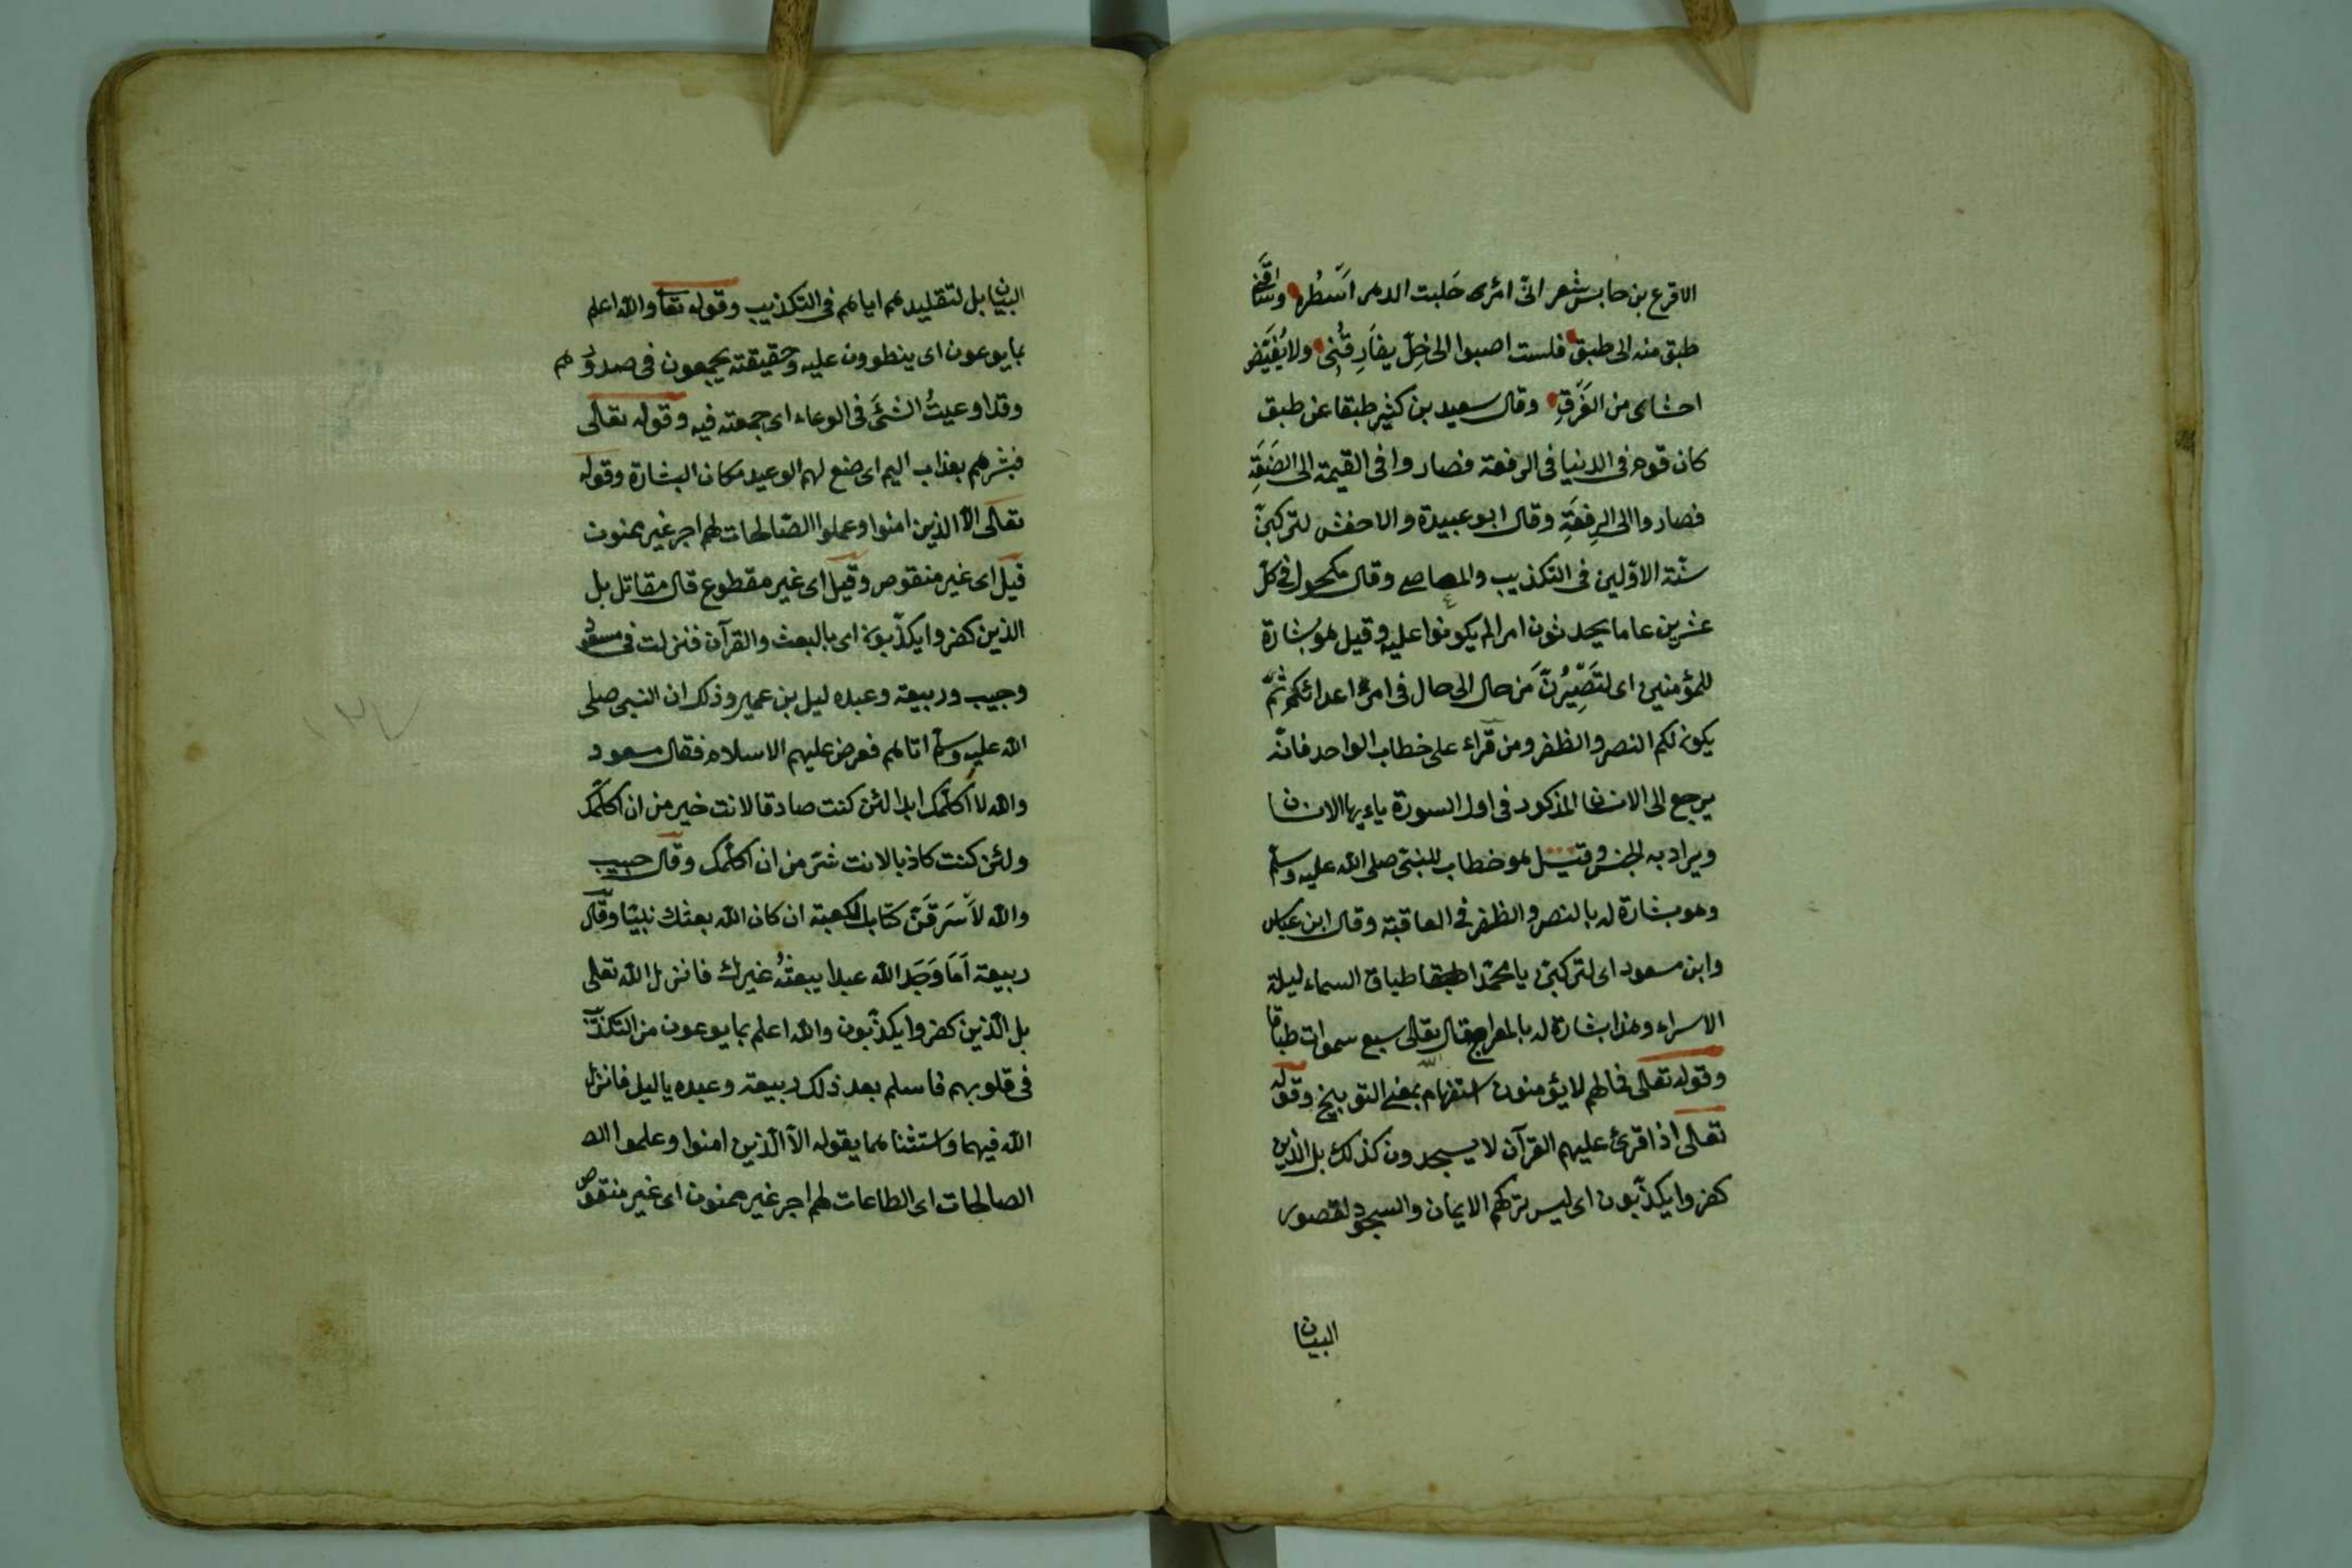 الاقرع بن حابس شعر انّى امْرء حَلبت الدهر اَسْطُره وساقَنى
طبق منه الى طبق فلست اصبوا الى خِلّ يفَارِقُنى ولا
احشاى من الفَرَقِ وقال سعيد بن كثير طبقا عن طبق
كان قوم فى الدنيا فى الرفعة فصاروا فى القيمة الى الضَعَةِ
فصاروا الى الرِفعَةِ وقال ابو عبيدة والاخفش لتركبنّ
سنّة الاوّلين فى التكذيب والمعاصى وقال مكحول فى كلّ
عشرين عاما يحدثون امرا لم يكونوا عليه وقيل هو بشارة
للمؤمنين اى لتَصِّيرُنَّ من حال الى حال فى امر اعدائكم ثمّ
يكون لكم النصر والظفر ومن قرآء على خطاب الواحد فانّه
يرجع الى الانسان المذكور فى اول السورة ياءيها الانسان
ويراد به الجنس وقيل هو خطاب للنبىّ صلى الله عليه وسلم
وهو بشارة له بالنصر والظفر فى العاقبة وقال ابن عباس
وابن مسعود اى لتركبنّ يا محمّد اطبقا طباق السماء ليلة
الاسراء وهذا بشارة له بالمعراج قال الله تعالى سبع سموات طباقا
وقوله تعالى فما لهم لا يؤمنون استفهام بمعنى التوبيخ وقوله
تعالى اذا قرئ عليهم القرآن لا يسجدون كذلك بل الذين
كفروا يكذّبون اى ليس تركهم الايمان والسجود لقصور
البيان
البيان بل لتقليدهم اياهم فى التكذيب وقوله تعا والله اعلم
بما يوعون اى ينطوون عليه وحقيقته يجمعون فى صدورهم
وقد اوعيتُ الشئَ فى الوعاء اى جمعته فيه وقوله تعالى
فبشرهم بعذاب اليم اى ضع لهم الوعيد مكان البشارة وقوله
تعالى الّا الذين امنوا وعملوا الصّالحات لهم اجر غير ممنون
قيل اى غير منقوص وقيل اى غير مقطوع قال مقاتل بل
الذين كفروا يكذّبون اى بالبعث والقرآن فنزلت فى مسعود
وحبيب وربيعة وعبده ليل بن عمير وذلك ان النبى صلى
الله عليه وسلم اتاهم فعرض عليهم الاسلام فقال مسعود
والله لا اُكلّمك ابدا لئن كنت صادقا لانت خير من ان اكلّمك
ولئن كنت كاذبا لانت شرّ من ان اكلّمك وقال حبيب
والله لاَسْرَقَنّ كتاب الكعبة ان كان الله بعثك نبيّا وقال
ربيعة اَمَا وَجَد الله عبدا يبعثُهُ غيرك فانزل الله تعالى
بل الّذين كفروا يكذّبون والله اعلم بما يوعون من التكذيب
فى قلوبهم فاسلم بعد ذلك ربيعة وعبده ياليل فانزل
الله فيهما واستثناهما بقوله الّا الّذين امنوا وعلموا الص
الصالحات اى الطاعات لهم اجر غير ممنون اى غير منقوص